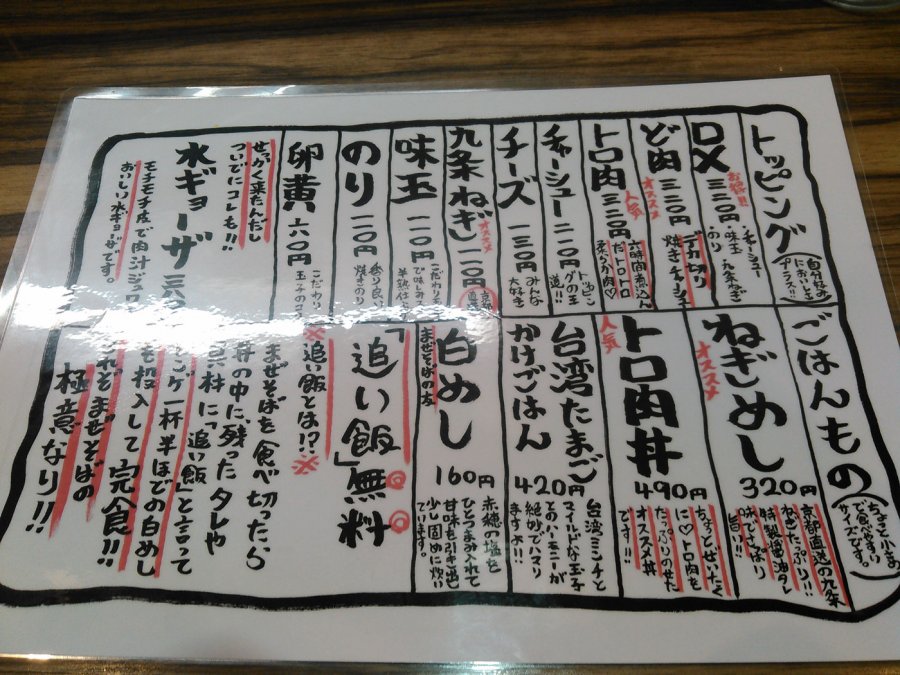 トッピング
自分好み
においと玉
プラス!!
DX 三三〇円
お得!!
・チャーシュー
・味玉
・九条ねぎ
・のり
ど肉 三三〇円
オススメ
デカ切り
焼きチャーシュー
トロ肉 三三〇円
人気
六時間煮込んだトロトロ
柔らか肉♡
チャーシュー 二一〇円
トッピングの王道!!
チーズ 一三〇円
みんな
大好き
九条ねぎ 二一〇円
オススメ
京都
直送
味玉 一一〇円
こだわり
で味み
半熟仕
のり 一一〇円
香り良い
焼きのり
卵黄 六〇円
こだわり
玉子の
せっかく来たんだし
ついでにコレも!!
水ギョーザ 三六
モチモチ皮で肉汁ジュワ
おいしい水ギョーザです。
ごはんもの
ちょっと小さめ
で食べやすい
サイズです。
ねぎめし 320円
オススメ
京都直送の九条
ねぎたっぷり!!
特製醤油タレ
味でさっぱり
旨い!!
トロ肉丼 490円
人気
ちょっとぜいたく
に♡トロ肉を
たっぷりのせた
オススメ丼
です!!
台湾たまご
かけごはん 420円
台湾ミンチと
マイルドな玉子
とのハーモニーが
絶妙でハマリ
ますよ!!
白めし 160円
まぜそばの友
赤穂の塩を
ひとつまみ入れて
甘味を引き出し
少し固めに炊い
ています。
「追い飯」無料
※追い飯とは!?※
まぜそばを食べ切ったら
丼の中に残ったタレや
具材に「追い飯」と言って
レンゲ一杯半ほどの白めし
を投入して完食!!
これぞまぜそばの
極意なり!!